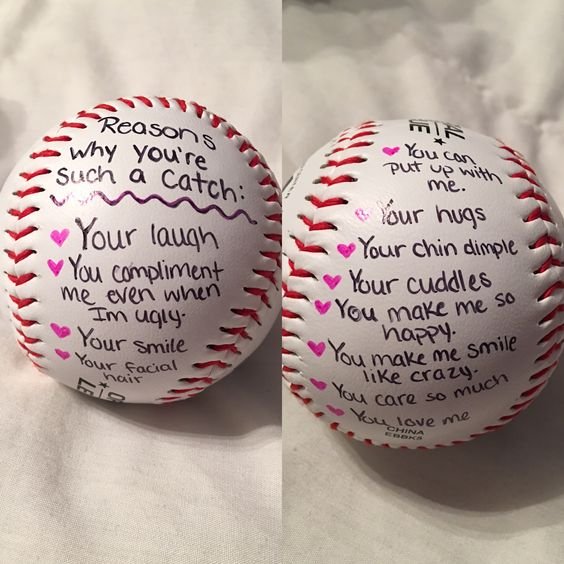 Reasons
why you're
such a catch:
Your laugh
You compliment
me even when
Im ugly.
Your smile
Your facial
hair
You can
put up with
me.
Your hugs
Your chin dimple
Your cuddles
You make me so
happy.
You make me smile
like crazy.
You care so much
You love me
CHINA
EBBK5